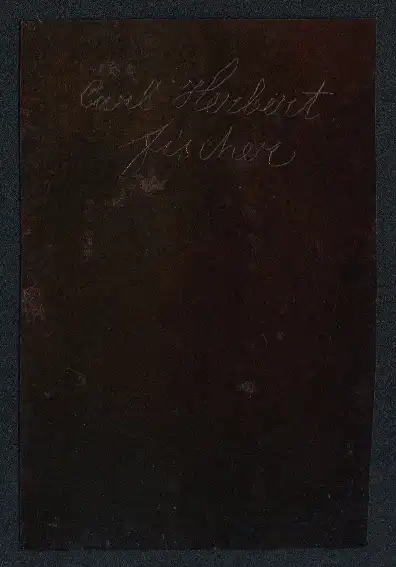 Carl Herbert
Fischer